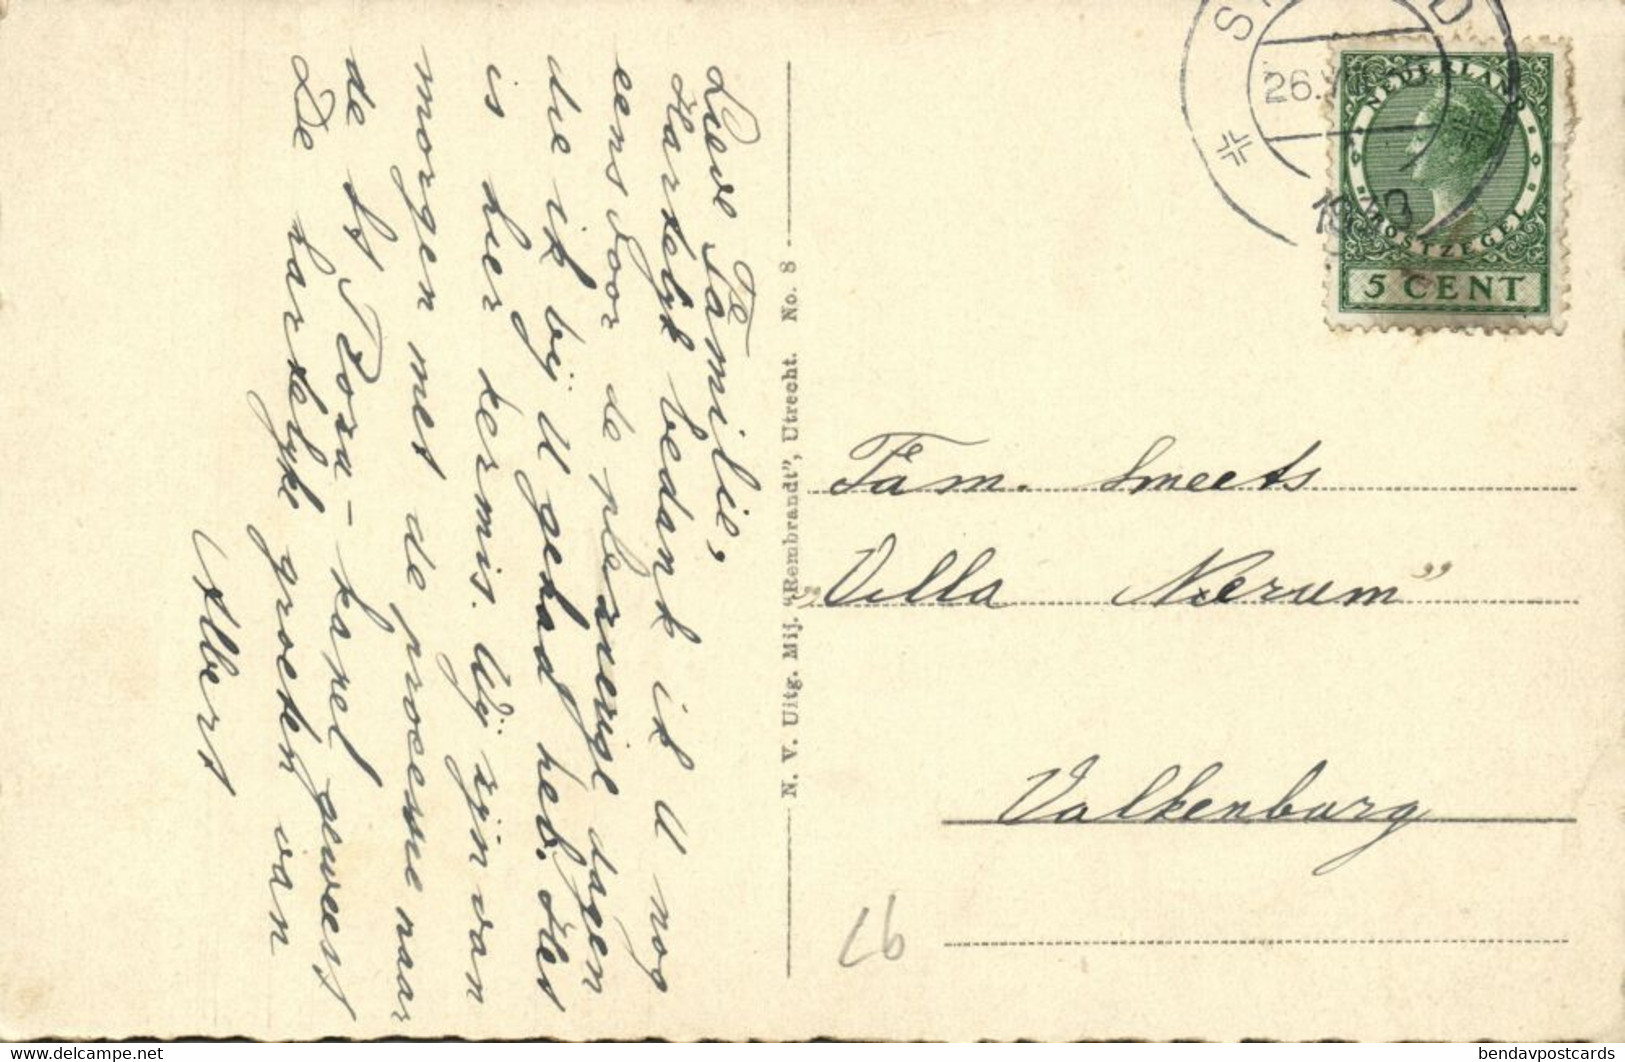 Lieve Familie,
Hartelijk bedank ik U nog
eens voor de plezierige dagen
die ik bij U gehad heb. Het
is hier kermis. Wij zijn van
morgen met de processie naar
de St. Rosa-kapel geweest
De hartelijke groeten van
Albert
N. V. Uitg. Mij. "Rembrandt", Utrecht. No. 8
26.
19
NEDERLAND
POSTZEGEL
5 CENT
Fam. Smeets
„Villa Nxerum”
Valkenburg
26
bendavpostcards